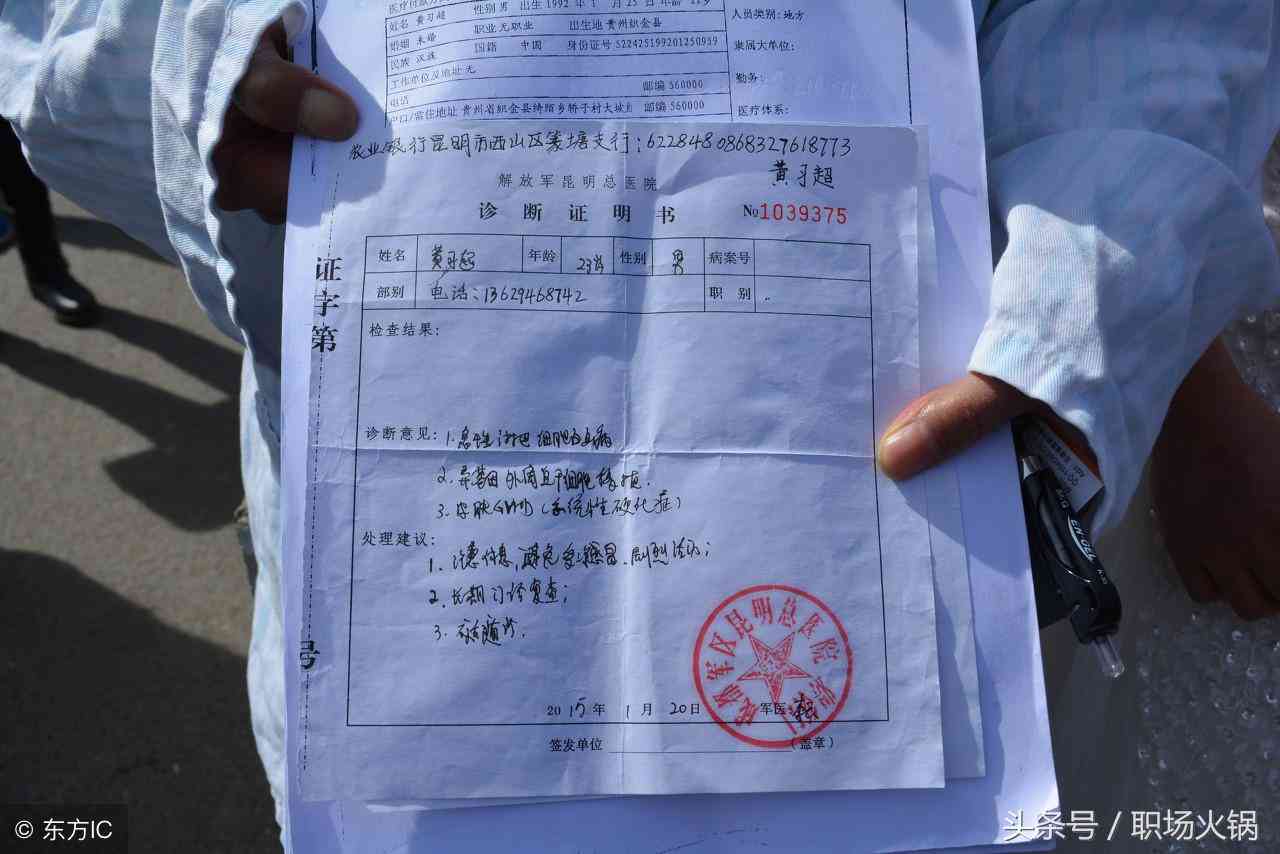 姓名 黄习超 性别 男 出生 1992 年 1 月 25 日 年龄
婚姻 未婚 职业 无职业 出生地 贵州织金县
民族 汉族 国籍 中国 身份证号 522425199201250959
工作单位及地址 无 邮编 560000
电话
户口/常住地址 贵州省织金县绮陌乡桥子村大坡 邮编 560000
人员类别:地方
隶属大单位:
勤务:
医疗体系:
农业银行昆明市西山区篆塘支行:6228480868327618773
黄习超
解放军昆明总医院
诊断证明书 №1039375
姓名 黄习超 年龄 23岁 性别 男 病案号
部别 电话:13629468742 职别
证字第
号
检查结果:
诊断意见:1.急性淋巴细胞白血病
2. 异基因外周血干细胞移植.
3.皮肤GVHD(系统性硬化症)
处理建议:
1. 注意休息,避免受凉感冒、剧烈活动;
2. 长期门诊复查;
3. 随诊.
成都军区昆明总医院
2015年 1 月 20日 军医
签发单位 (盖章)
© 东方IC
头条号 / 职场火锅